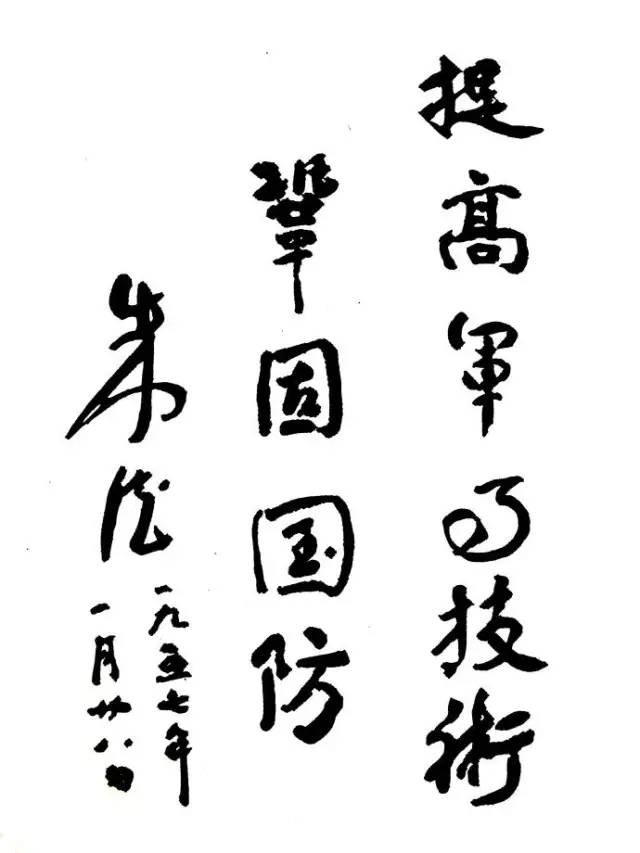 提高军事技術
鞏固国防
朱德
一九五七年
一月廿八日